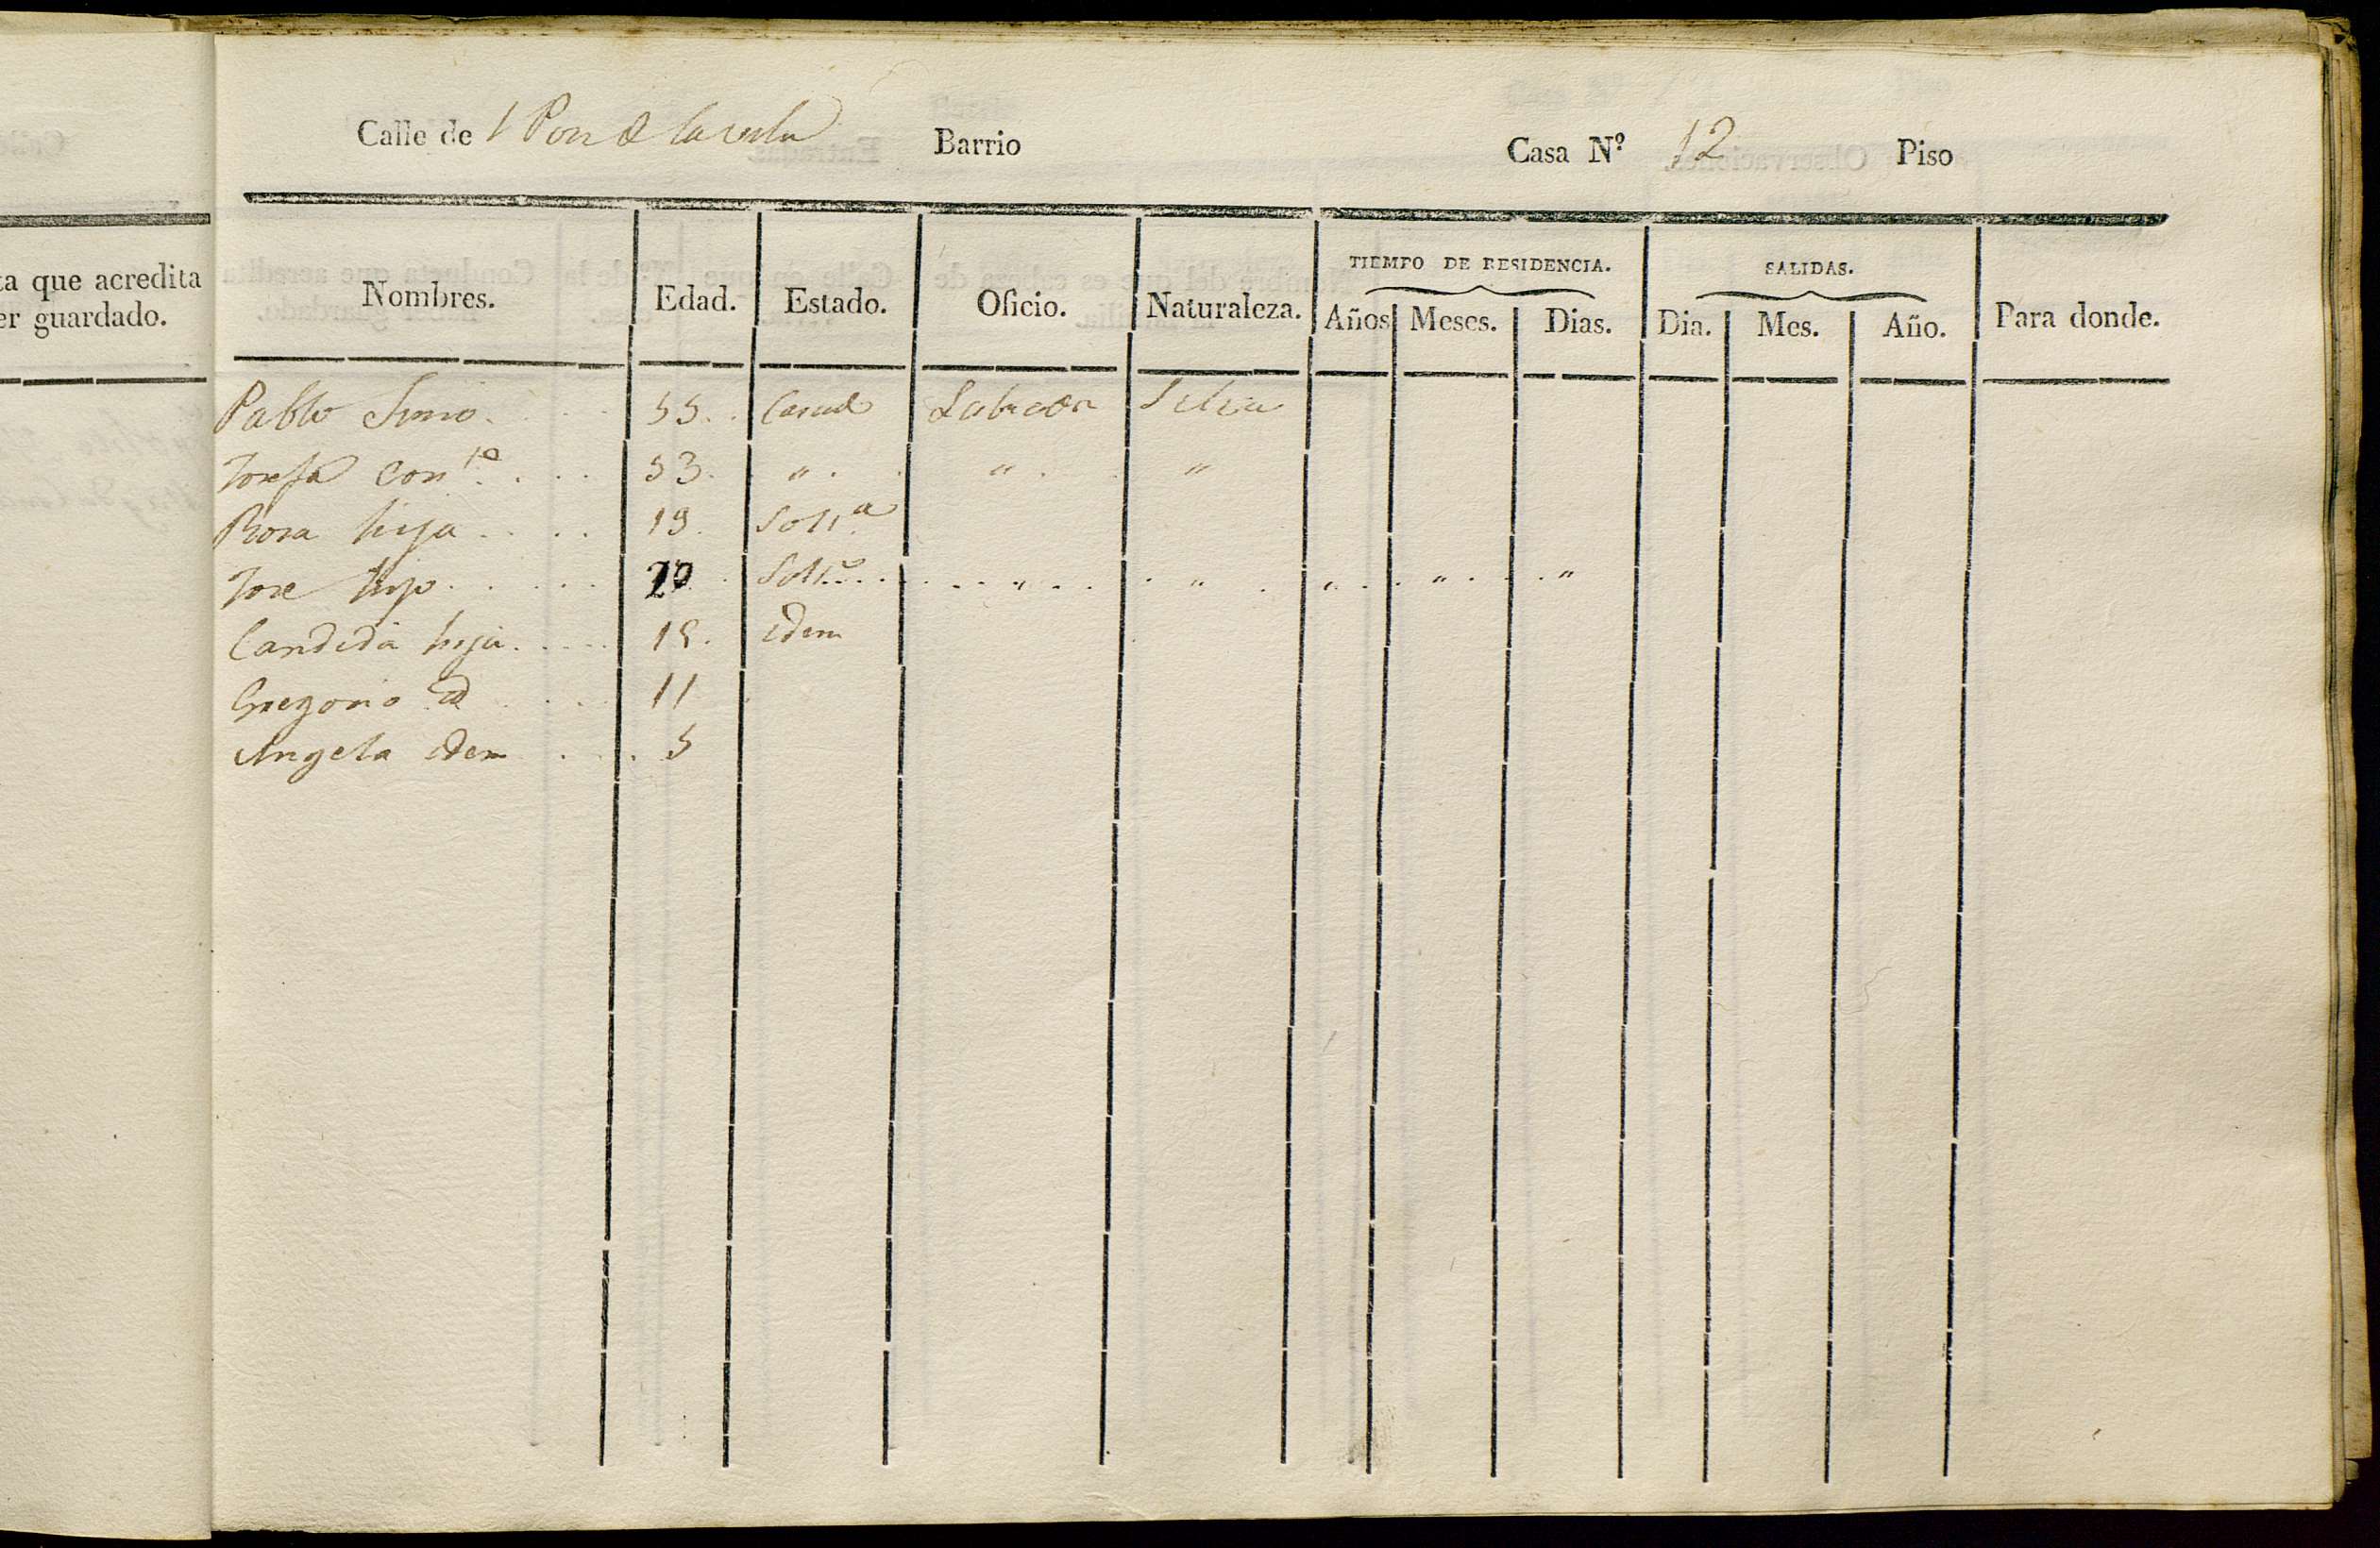 ta que acredita
er guardado.
Calle de 1 Barrio Casa Nº 12 Piso
Nombres. Edad. Estado. Oficio. Naturaleza. TIEMPO DE RESIDENCIA. Años Meses. Dias. SALIDAS. Dia. Mes. Año. Para donde.
Pablo Simo. 55. Casad Labrador Selva
Josefa Conte. 53. " " "
Rosa hija 19. Solta
Jose hijo 20. Solto " " " " "
Candida hija 15. idem
Gregorio id 11
Angela idem 5